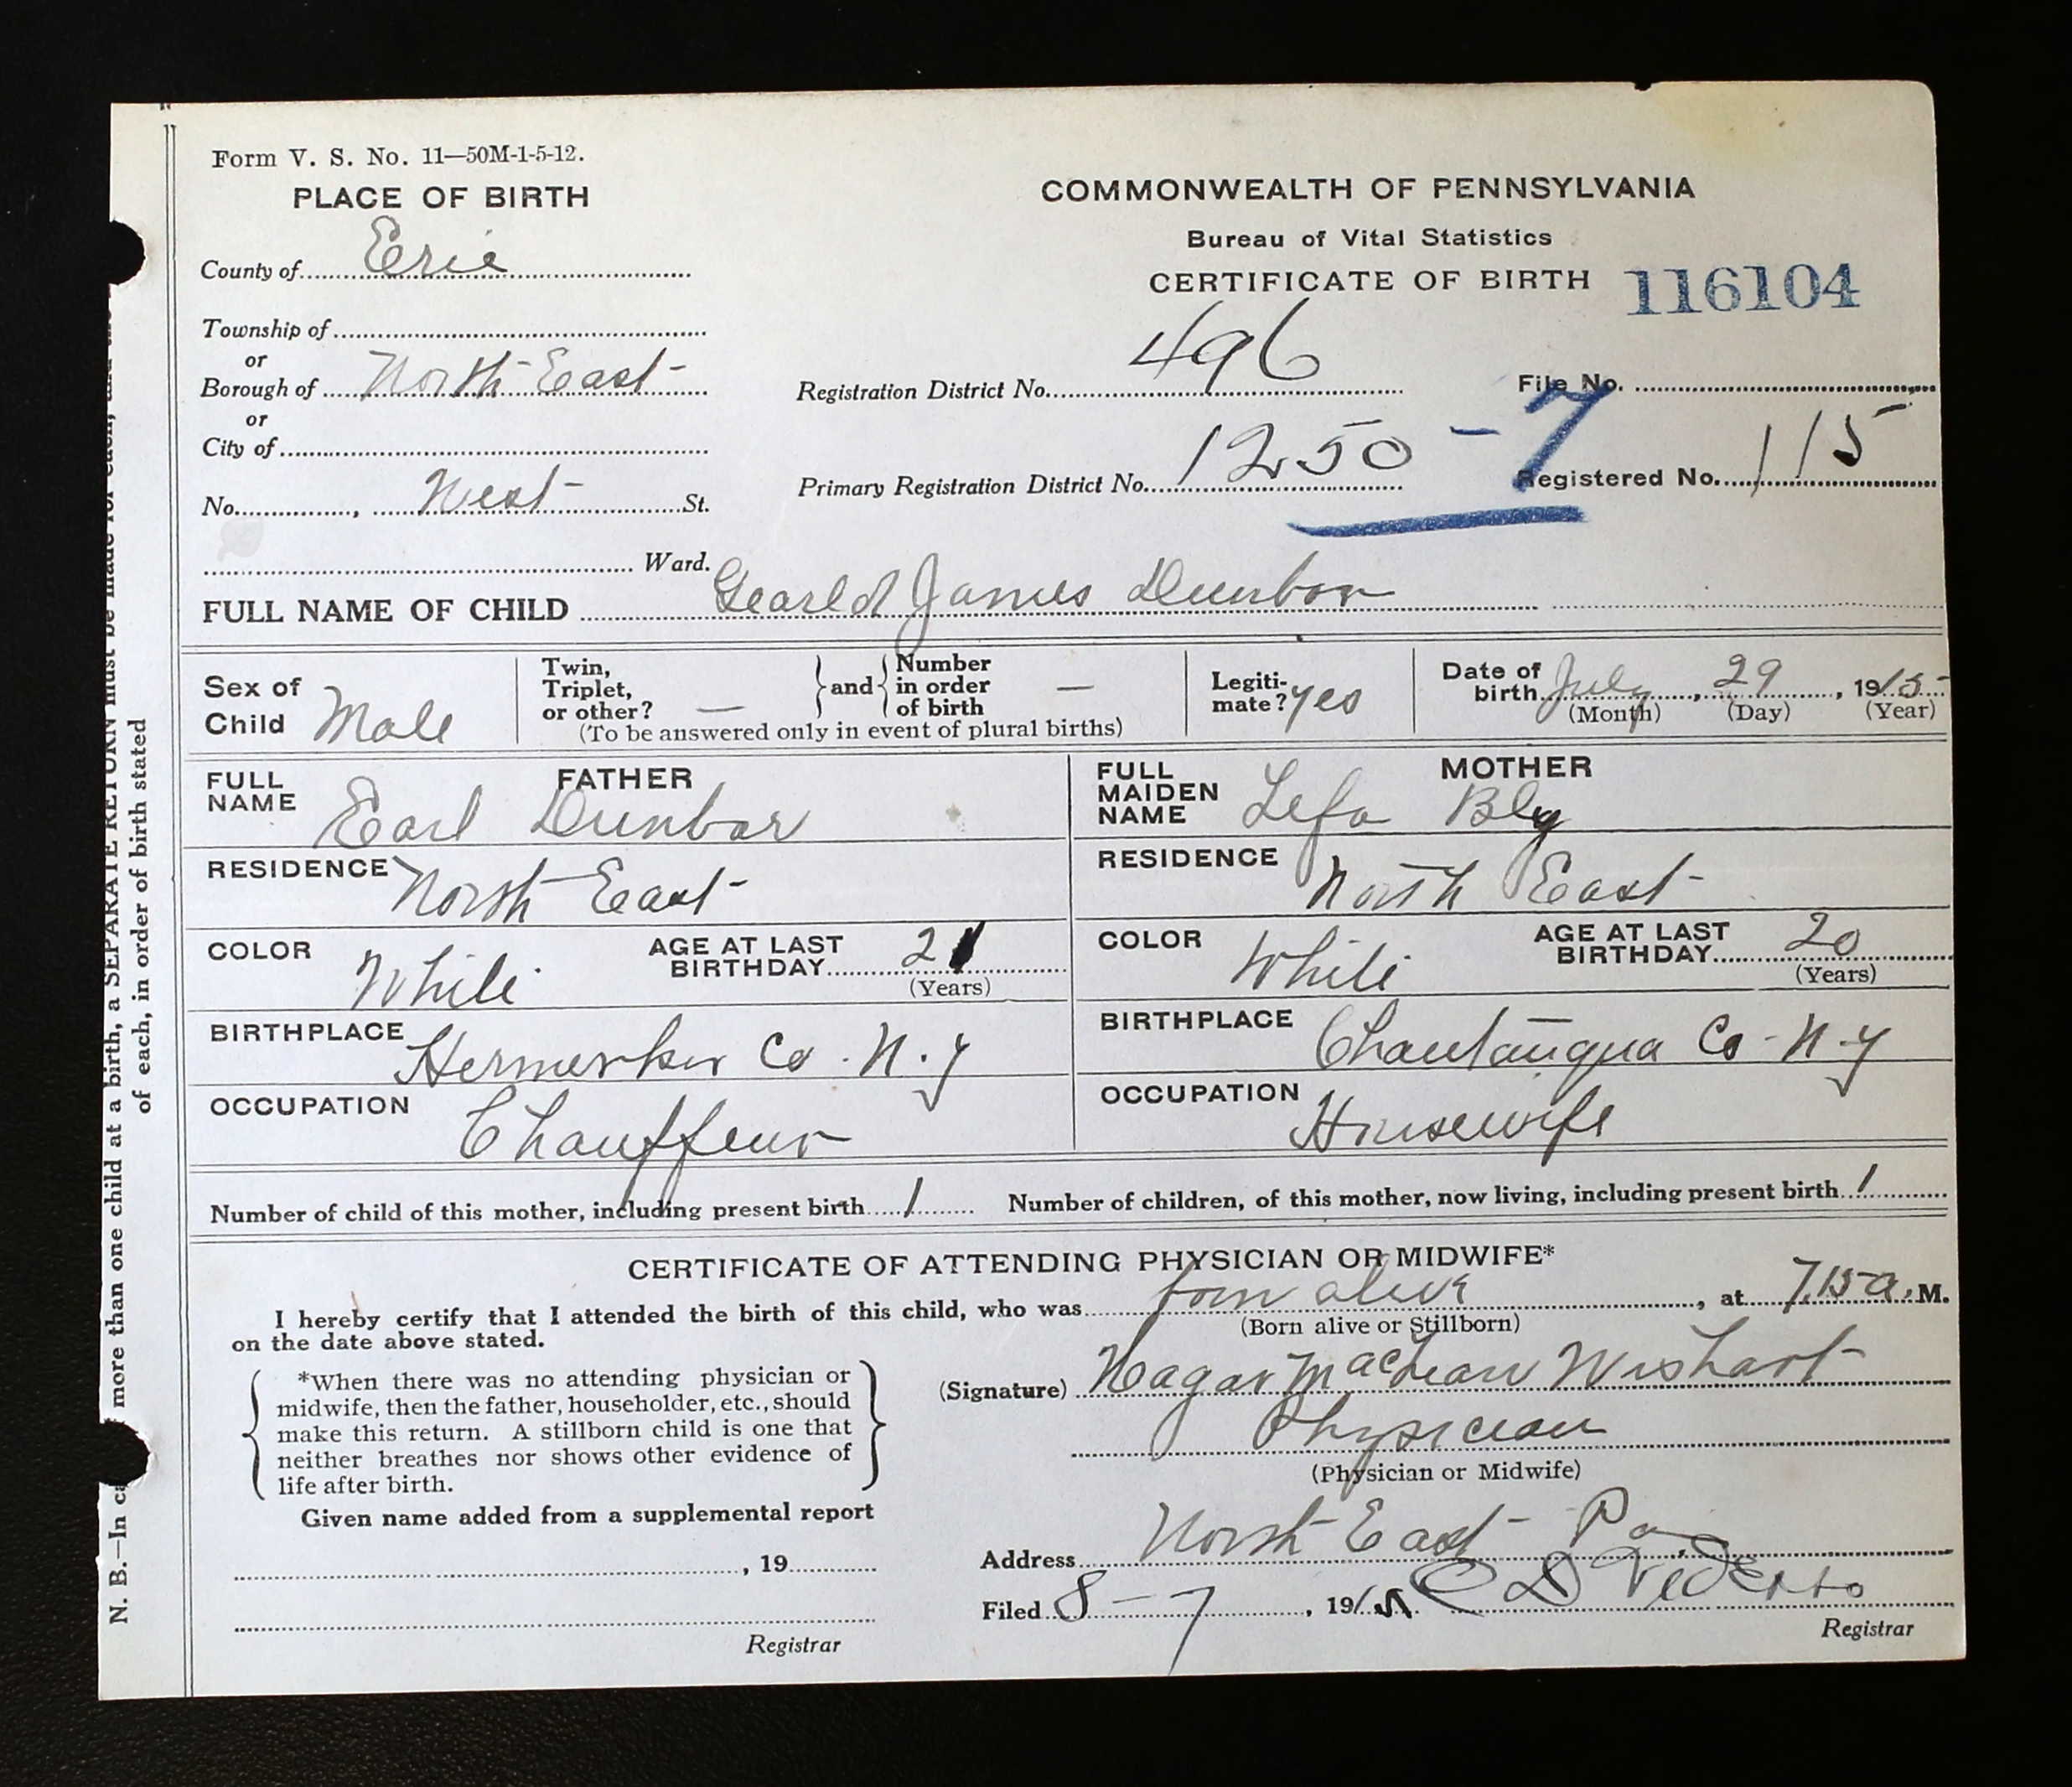 Form V. S. No. 11—50M-1-5-12.
PLACE OF BIRTH
County of Erie
Township of
or
Borough of North East
or
City of
No. , West St.
Ward.
COMMONWEALTH OF PENNSYLVANIA
Bureau of Vital Statistics
CERTIFICATE OF BIRTH 116104
Registration District No. 496 File No.
Primary Registration District No. 1250 - 7 Registered No. 115
FULL NAME OF CHILD Gearld James Dunbar
Sex of Child Male
Twin, Triplet, or other? — and Number in order of birth —
(To be answered only in event of plural births)
Legiti-mate? yes
Date of birth July, 29, 1915
(Month) (Day) (Year)
FATHER
FULL NAME Earl Dunbar
RESIDENCE North East
COLOR White AGE AT LAST BIRTHDAY 21
(Years)
BIRTHPLACE Hermerker Co. N.Y
OCCUPATION Chauffeur
MOTHER
FULL MAIDEN NAME Lefa Bly
RESIDENCE North East
COLOR White AGE AT LAST BIRTHDAY 20
(Years)
BIRTHPLACE Chautauqua Co - N-Y
OCCUPATION Housewife
Number of child of this mother, including present birth 1 Number of children, of this mother, now living, including present birth 1
CERTIFICATE OF ATTENDING PHYSICIAN OR MIDWIFE*
I hereby certify that I attended the birth of this child, who was born alive, at 7.15 a. M.
(Born alive or Stillborn)
on the date above stated.
*When there was no attending physician or
midwife, then the father, householder, etc., should
make this return. A stillborn child is one that
neither breathes nor shows other evidence of
life after birth.
Given name added from a supplemental report
, 19
Registrar
(Signature) Hagar MacLean Wishart
Physician
(Physician or Midwife)
Address North East Pa
Filed 8-7, 1915 C D
Registrar
N. B.—In more than one child at a birth, a SEPARATE RETURN must be made for each,
of each, in order of birth stated